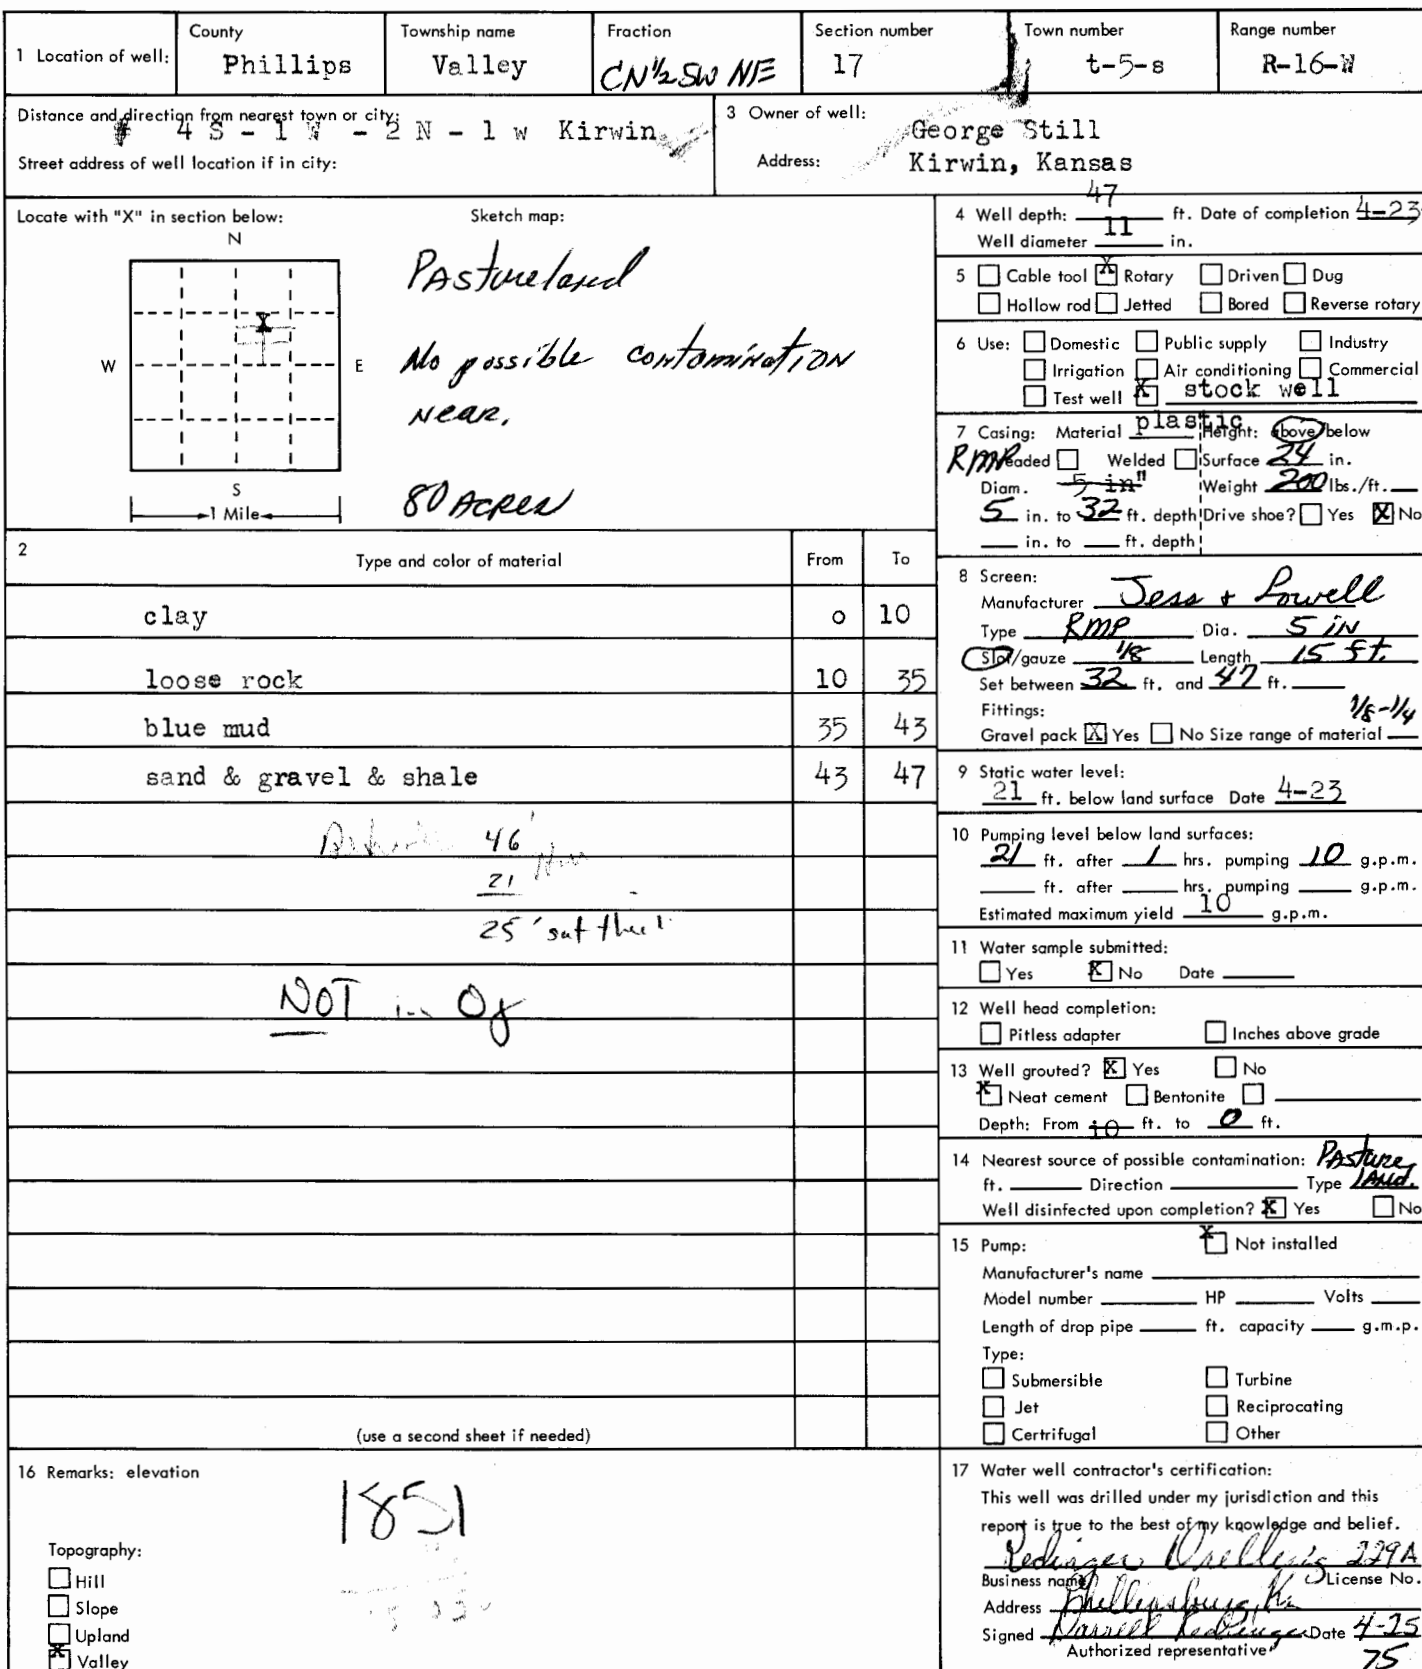 1 Location of well:
County
Phillips
Township name
Valley
Fraction
CN½ SW NE
Section number
17
Town number
t-5-s
Range number
R-16-W
Distance and direction from nearest town or city:
4 S - 1 W - 2 N - 1 w Kirwin
Street address of well location if in city:
3 Owner of well:
George Still
Address:
Kirwin, Kansas
Locate with "X" in section below:
N
X
W
E
S
1 Mile
Sketch map:
Pastureland
No possible contamination
near.
80 Acres
2
Type and color of material
From
To
clay o 10
loose rock 10 35
blue mud 35 43
sand & gravel & shale 43 47
46'
21
25'
NOT in
(use a second sheet if needed)
4 Well depth: 47 ft. Date of completion 4-23
Well diameter 11 in.
5 Cable tool X Rotary Driven Dug
Hollow rod Jetted Bored Reverse rotary
6 Use: Domestic Public supply Industry
Irrigation Air conditioning Commercial
Test well X stock well
7 Casing: Material plastic Height: above/below
RMP eaded Welded Surface 24 in.
Diam. 5 in" Weight 200 lbs./ft.
5 in. to 32 ft. depth Drive shoe? Yes X No
in. to ft. depth
8 Screen:
Manufacturer Jess & Lowell
Type RMP Dia. 5 IN
Slot/gauze 1/8 Length 15 ft.
Set between 32 ft. and 47 ft.
Fittings: 1/8-1/4
Gravel pack X Yes No Size range of material
9 Static water level:
21 ft. below land surface Date 4-23
10 Pumping level below land surfaces:
21 ft. after 1 hrs. pumping 10 g.p.m.
ft. after hrs. pumping g.p.m.
Estimated maximum yield 10 g.p.m.
11 Water sample submitted:
Yes X No Date
12 Well head completion:
Pitless adapter Inches above grade
13 Well grouted? X Yes No
X Neat cement Bentonite
Depth: From 10 ft. to 0 ft.
14 Nearest source of possible contamination: Pasture
ft. Direction Type land.
Well disinfected upon completion? X Yes No
15 Pump: X Not installed
Manufacturer's name
Model number HP Volts
Length of drop pipe ft. capacity g.m.p.
Type:
Submersible Turbine
Jet Reciprocating
Certrifugal Other
16 Remarks: elevation
1851
Topography:
Hill
Slope
Upland
X Valley
17 Water well contractor's certification:
This well was drilled under my jurisdiction and this
report is true to the best of my knowledge and belief.
Redinger Drilling 229A
Business name License No.
Address Phillipsburg, Ks
Signed Darrell Redinger Date 4-25
Authorized representative 75